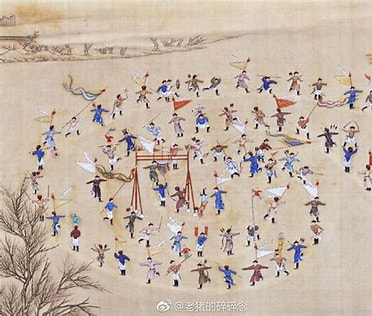 @老猪的碎碎念